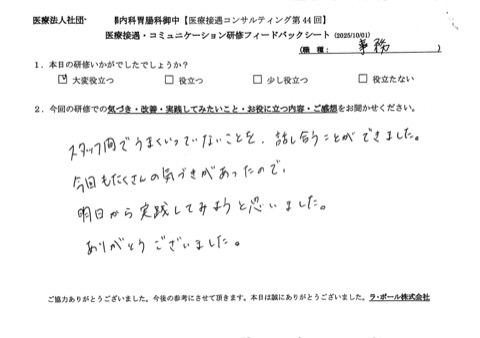 医療法人社団 内科胃腸科御中【医療接遇コンサルティング第44回】
医療接遇・コミュニケーション研修フィードバックシート(2025/10/01)
(職種: 事務)
1.本日の研修いかがでしたでしょうか?
☑ 大変役立つ □ 役立つ □ 少し役立つ □ 役立たない
2.今回の研修での気づき・改善・実践してみたいこと・お役に立つ内容・ご感想をお聞かせください。
スタッフ間でうまくいっていないことを、話し合うことができました。
今回もたくさんの気づきがあったので、
明日から実践してみようと思いました。
ありがとうございました。
ご協力ありがとうございました。今後の参考にさせて頂きます。本日は誠にありがとうございました。ラ・ポール株式会社